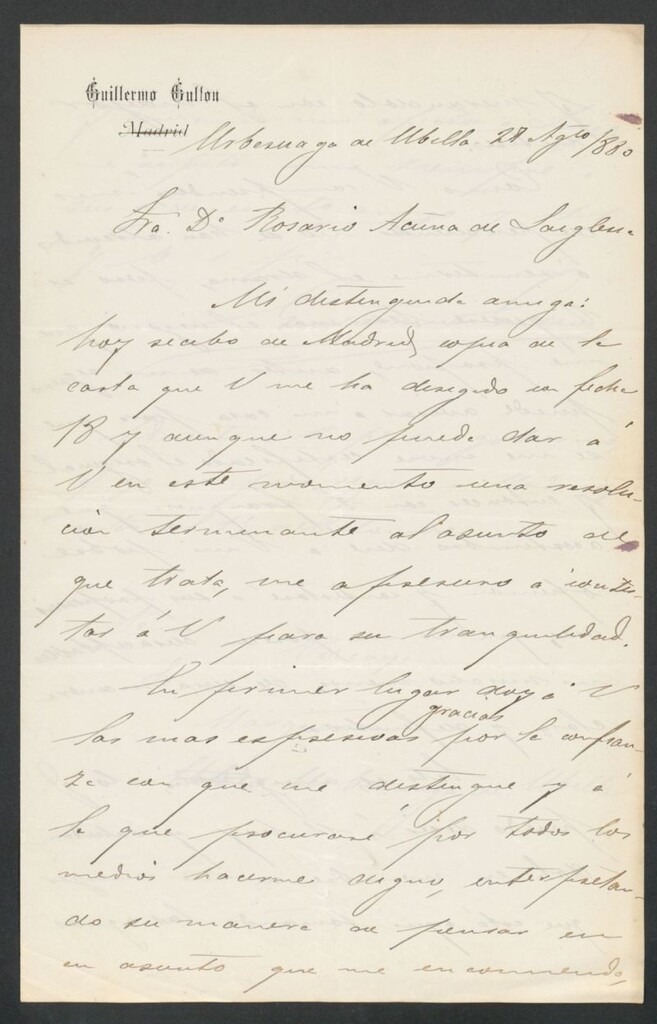 Guillermo Gullon
Madrid
Urberuaga de Ubilla 28 Agto/880
Sra. Da. Rosario Acuña de Laiglesia
Mi distinguida amiga:
hoy recibo de Madrid, copia de la
carta que V me ha dirigido con fecha
18 y aunque no puedo dar á
V en este momento una resolu-
cion terminante al asunto de
que trata, me apresuro a contes-
tar á V para su tranquilidad.
En primer lugar doy á V
las mas espresivas gracias por la confian-
za con que me distingue y á
la que procuraré por todos los
medios hacerme digno, interpretan-
do su manera de pensar en
en asunto que me encomienda,